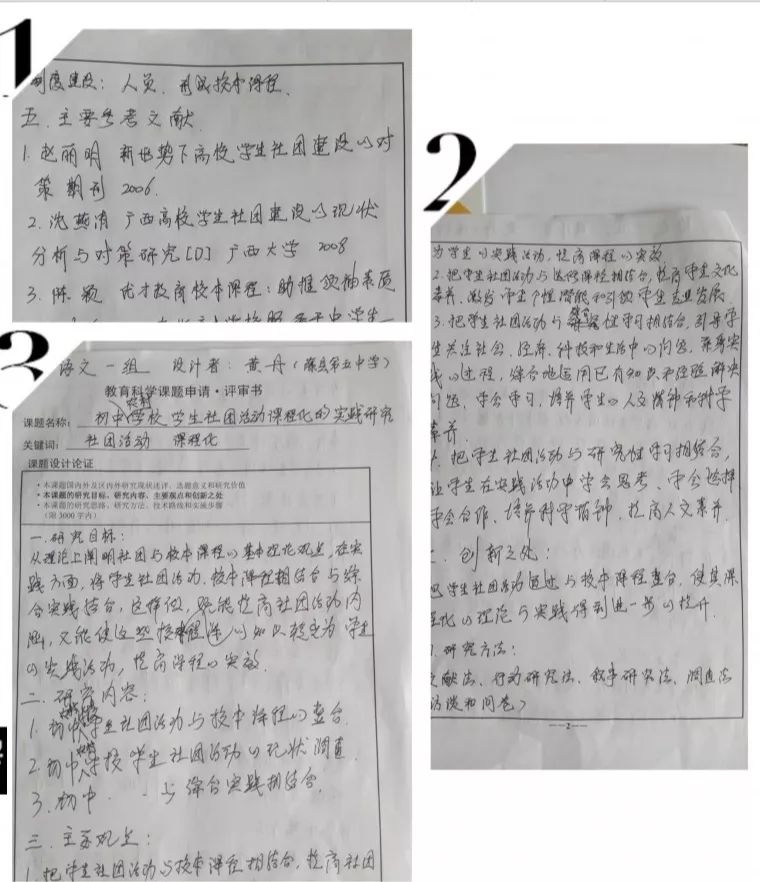 1
制度建设：人员、形成校本课程。
五、主要参考文献
1. 赵丽明 新形势下高校学生社团建设的对
策 期刊 2006.
2. 沈燕清 广西高校学生社团建设的现状
分析与对策研究[D] 广西大学 2008
3. 陈颖 优才教育校本课程：助推领袖素质
2
为学生的实践活动，提高课程的实效
2.把学生社团活动与选修课程相结合，提高学生文化
素养，激发学生个性潜能和引领学生专业发展.
3.把学生社团活动与综合性学习相结合，引导学
生关注社会、经济、科技和生活中的内容，亲身实
践的过程，综合地运用已有知识和经验解决
问题，学会学习，培养学生的人文精神和科学
素养.
把学生社团活动与研究性学习相结合，
让学生在实践活动中学会思考、学会选择
学会合作、培养科学精神、提高人文素养.
创新之处：
把学生社团活动通过与校本课程整合，使其课
程化的理论与实践得到进一步的提升.
研究方法：
文献法、行动研究法、叙事研究法、调查法
访谈和问卷）
—2—
3
语文一组 设计者：黄丹（藤县第五中学）
教育科学课题申请·评审书
课题名称：初中农村学校学生社团活动课程化的实践研究
关键词：社团活动 课程化
课题设计论证
•本课题国内外及区内外研究现状述评、选题意义和研究价值
•本课题的研究目标、研究内容、主要观点和创新之处
•本课题的研究思路、研究方法、技术路线和实施步骤
（限3000字内）
一.研究目标：
从理论上阐明社团与校本课程的基本理论观点，在实
践方面，将学生社团活动、校本课程相结合与综
合实践结合，这样做，既能提高社团活动内
涵，又能使这些校本课程的知识转变为学生
的实践活动，提高课程的实效.
二.研究内容：
1.初中学生社团活动与校本课程的整合.
2.初中农村学校学生社团活动的现状调查.
3.初中 与综合实践相结合.
三.主要观点：
1.把学生社团活动与校本课程相结合，提高社团